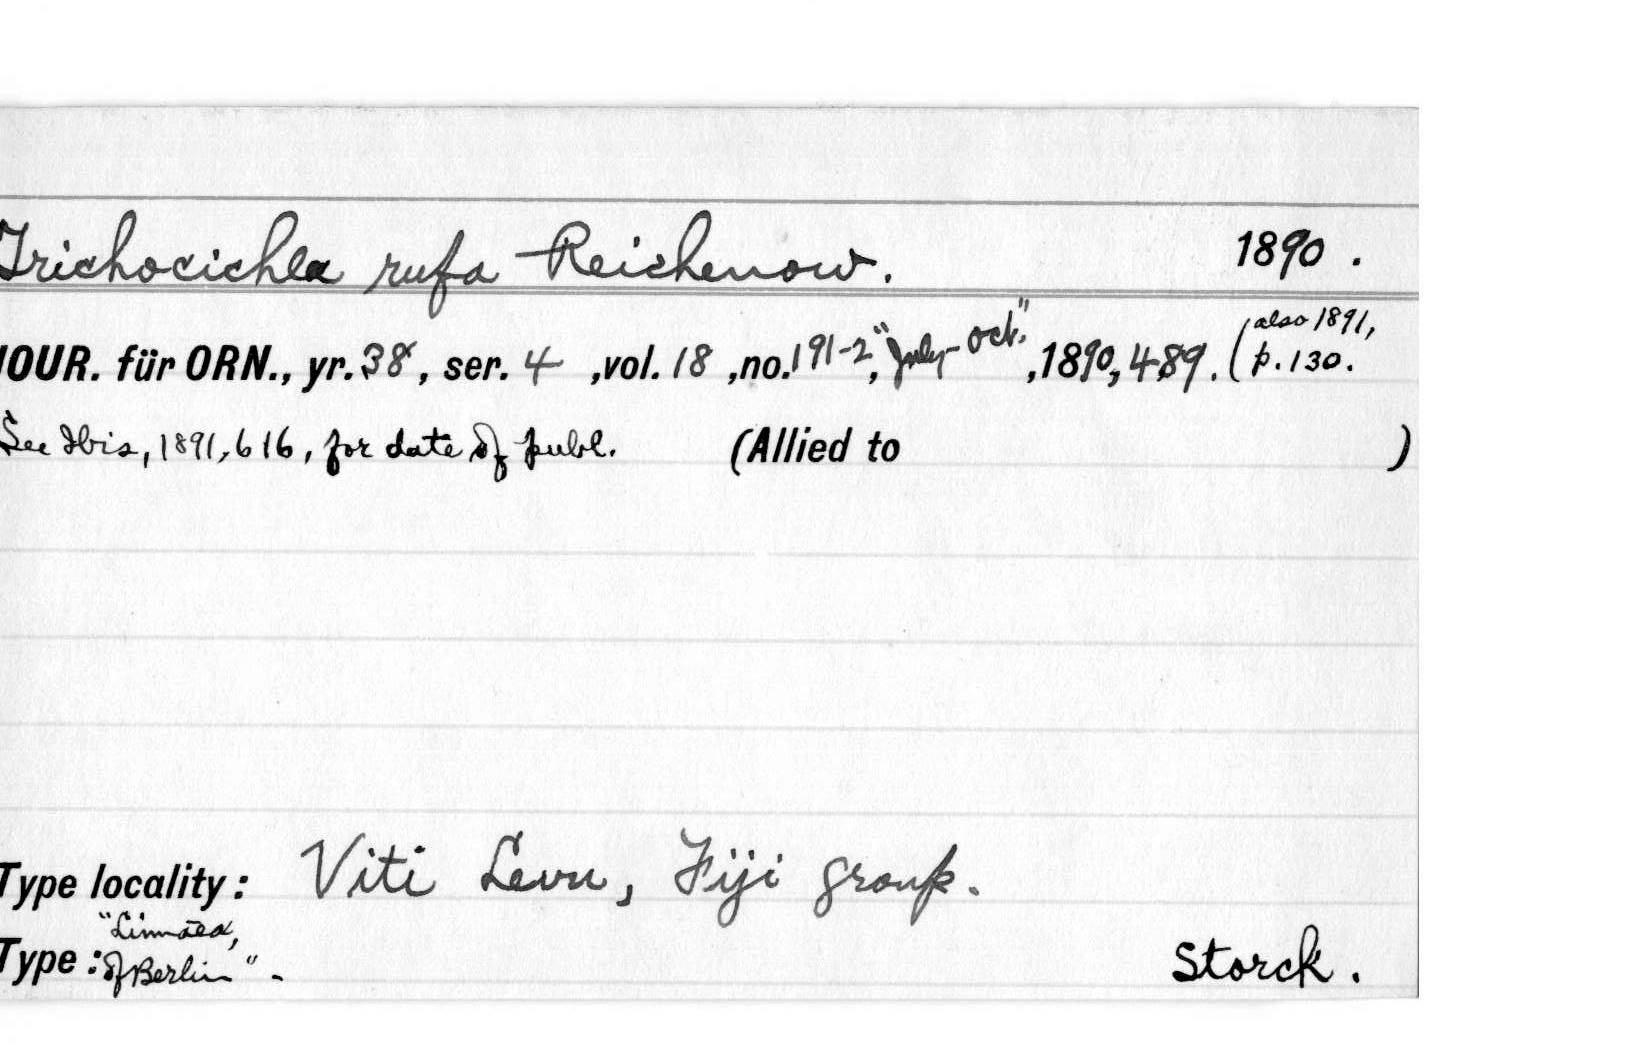 Trichocichla rufa Reichenow. 1890.
JOUR. für ORN., yr. 38, ser. 4, vol. 18, no. 191-2, "July-Oct.", 1890, 489. (also 1891, p. 130.
See Ibis, 1891, 616, for date of publ. (Allied to )
Type locality: Viti Levu, Fiji group.
Type: "Linnaea, of Berlin". Storck.